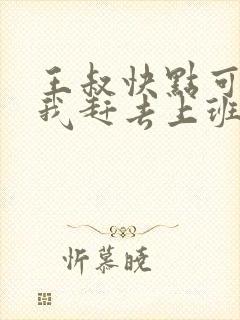 王叔快點可
我赶去上班
忻慕晓